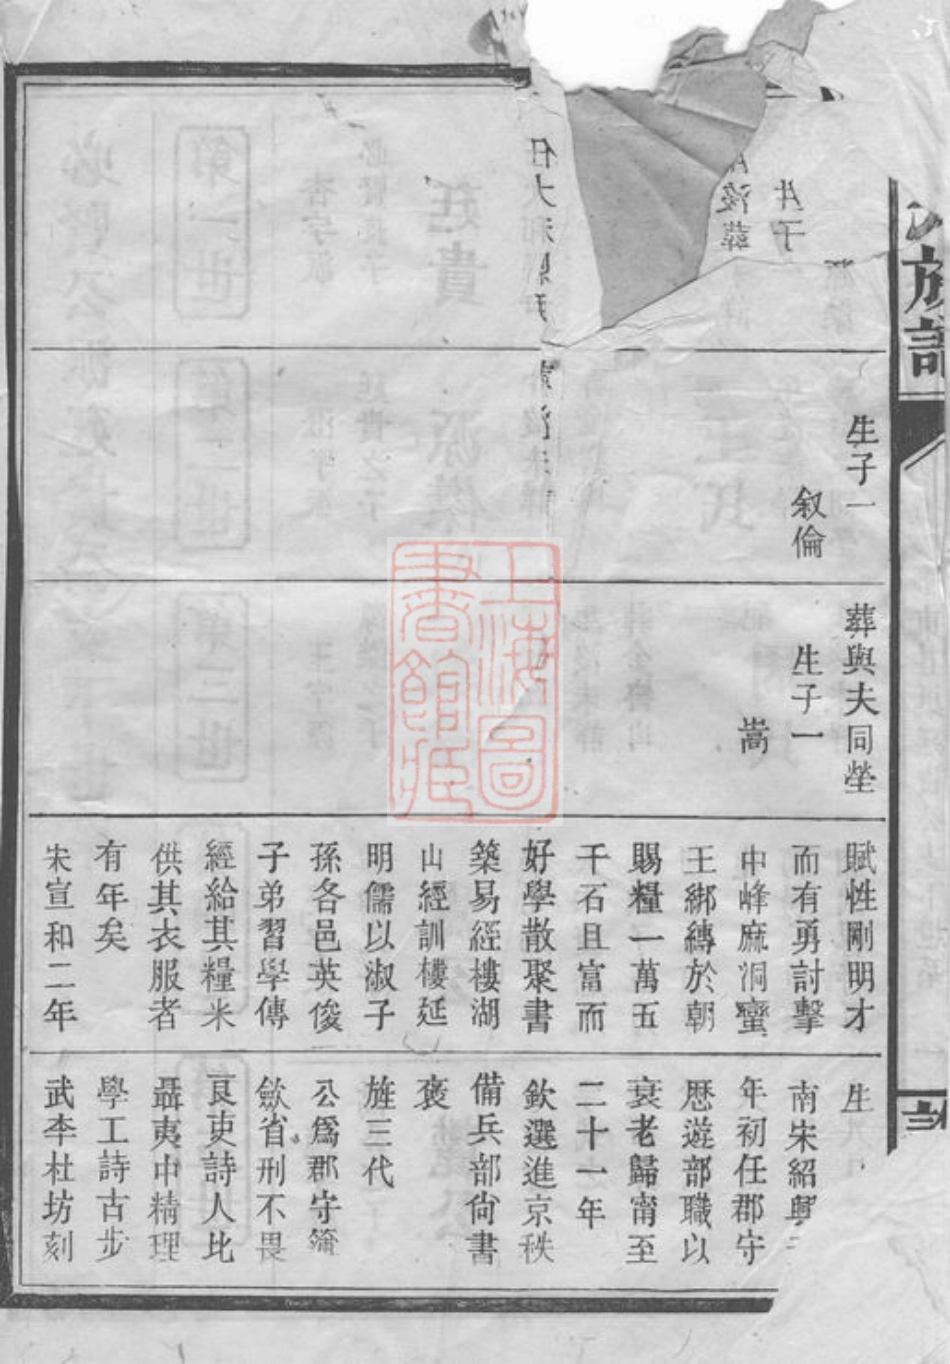 族譜
生子
後葬
生子一
叙倫
葬與夫同塋
生子一
嵩
賦性剛明才
而有勇討擊
中峰麻洞蠻
王綁縳於朝
賜糧一萬五
千石且富而
好學散聚書
築易經樓湖
山經訓樓延
明儒以淑子
孫各邑英俊
子弟習學傳
經給其糧米
供其衣服者
有年矣
宋宣和二年
生
南宋紹興
年初任郡守
歴遊部職以
衰老歸甯至
二十一年
欽選進京秩
備兵部尙書
褒
旌三代
公爲郡守簿
歛省刑不畏
艮吏詩人比
聶夷中精理
學工詩古步
武李杜坊刻
上海圖
書館藏